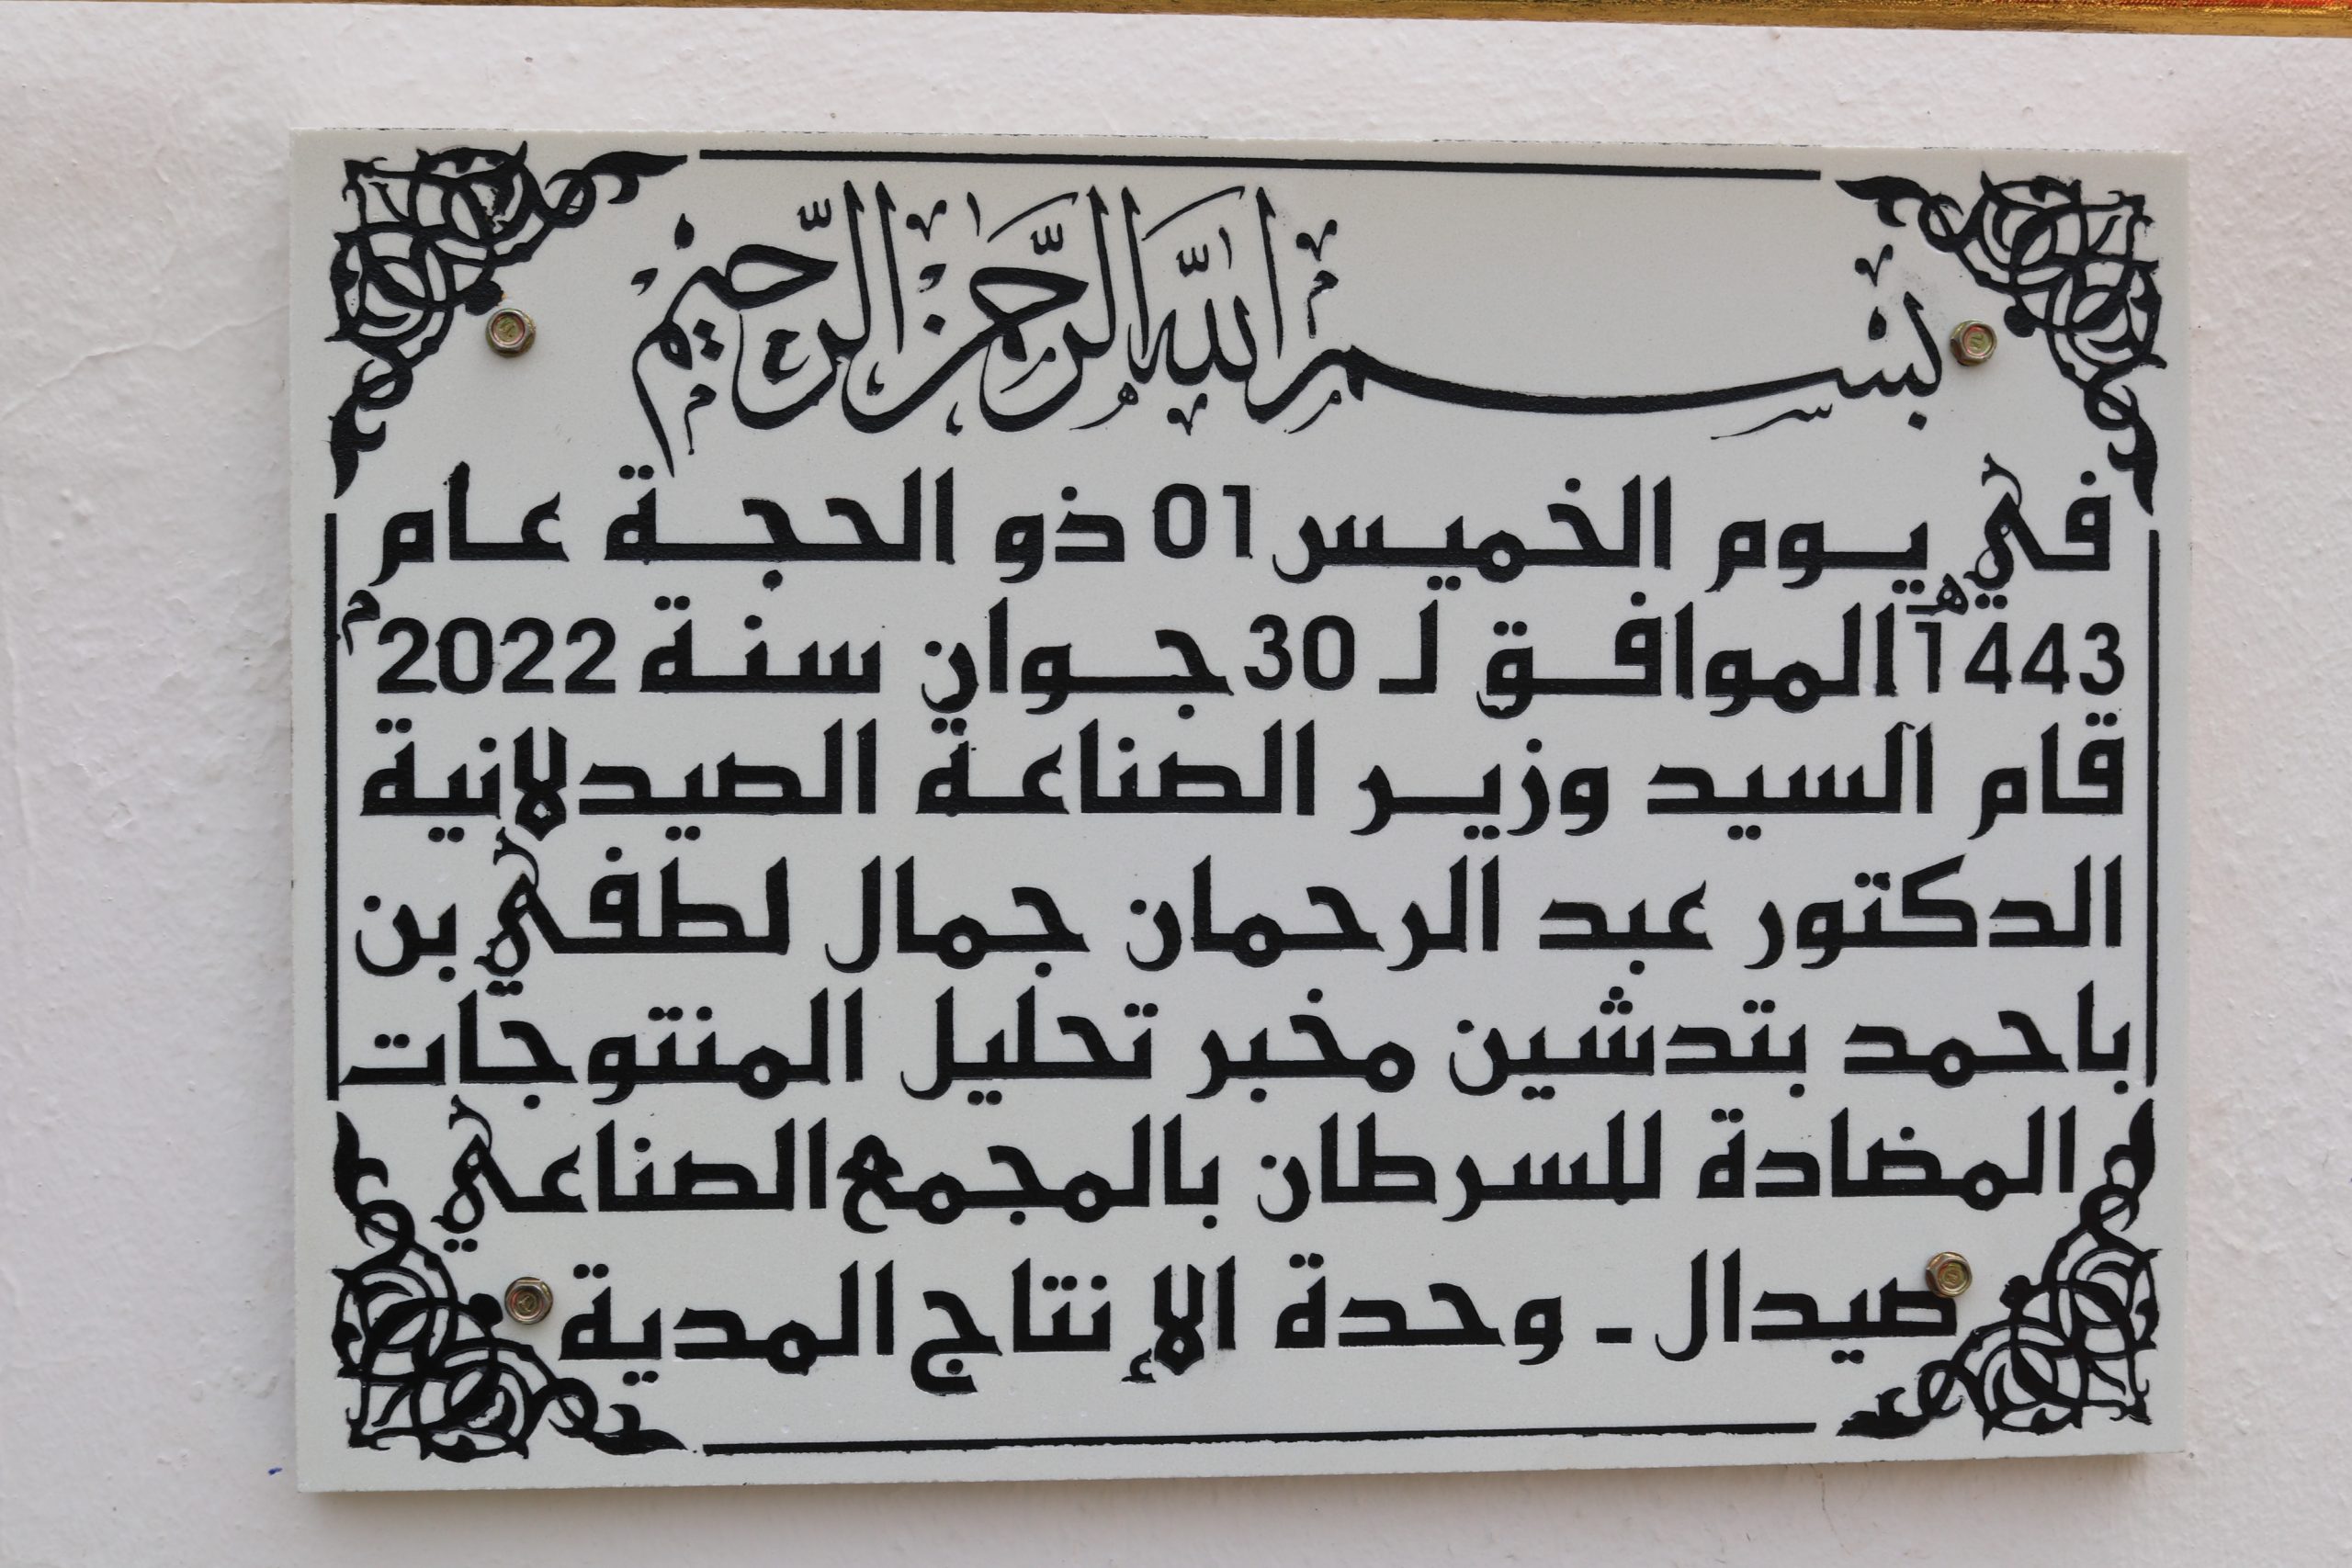 بسم الله الرحمن الرحيم
في يوم الخميس 01 ذو الحجة عام
1443هـ الموافق لـ 30 جوان سنة 2022م
قام السيد وزير الصناعة الصيدلانية
الدكتور عبد الرحمان جمال لطفي بن
باحمد بتدشين مخبر تحليل المنتوجات
المضادة للسرطان بالمجمع الصناعي
صيدال - وحدة الإنتاج المدية